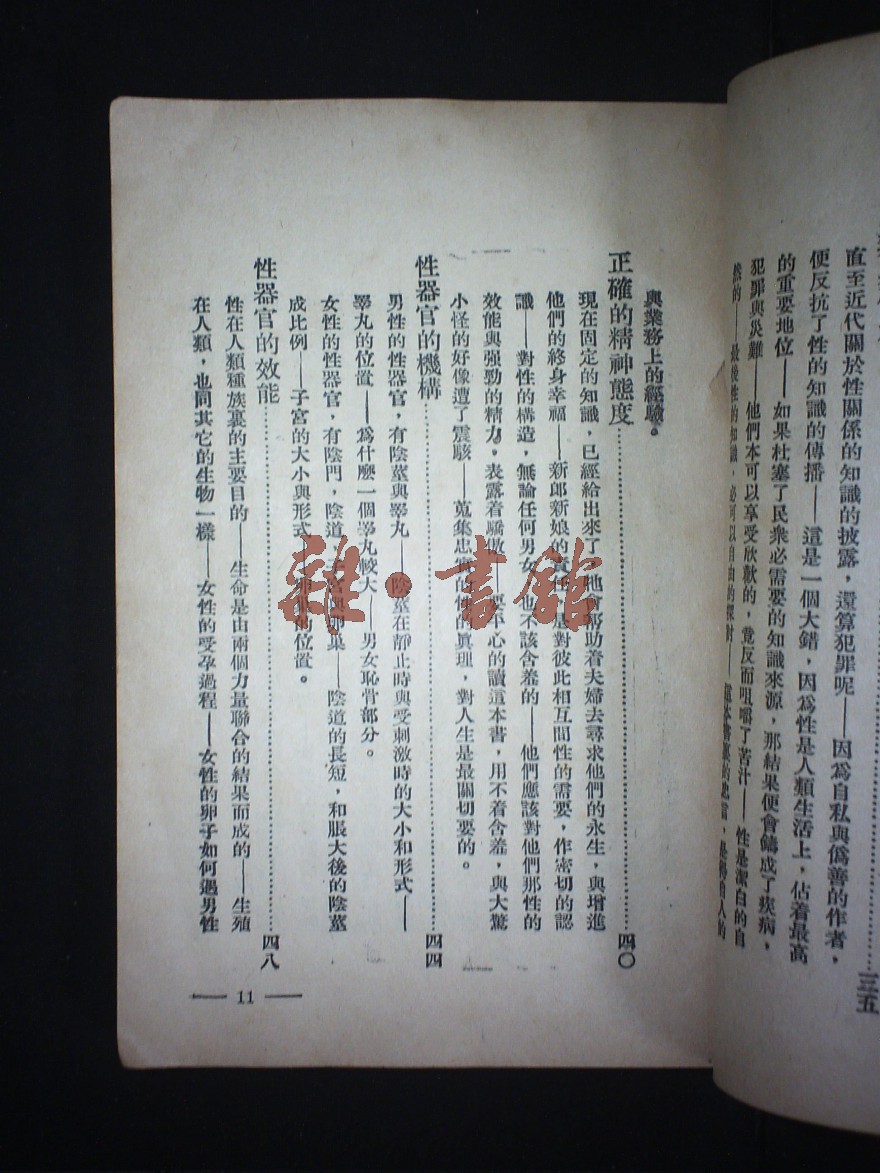 直至近代關於性關係的知識的披露，還算犯罪呢——因爲自私與僞善的作者，
便反抗了性的知識的傳播——這是一個大錯，因爲性是人類生活上，佔着最高
的重要地位——如果杜塞了民衆必需要的知識來源，那結果便會鑄成了疾病，
犯罪與災難——他們本可以享受欣歡的，竟反而咀嚼了苦汁——性是潔白的自
然的——最後性的知識，必可以自由的探討——
三五
與業務上的經驗。
正確的精神態度…………四〇
現在固定的知識，已經給出來了，牠會幫助着夫婦去尋求他們的永生，與增進
他們的終身幸福——新郎新娘的責任，是對彼此相互間性的需要，作密切的認
識——對性的構造，無論任何男女，也不該含羞的——他們應該對他們那性的
效能與强勁的精力，表露着驕傲——要中心的讀這本書，用不着含羞，與大驚
小怪的好像遭了震駭——蒐集忠實的性的眞理，對人生是最關切要的。
性器官的機構…………四四
男性的性器官，有陰莖與睾丸——陰莖在靜止時與受刺激時的大小和形式——
睾丸的位置——爲什麼一個睾丸較大——男女恥骨部分。
女性的性器官，有陰門，陰道，子宮與卵巢——陰道的長短，和脹大後的陰莖
成比例——子宮的大小與形式——卵巢的位置。
性器官的效能…………四八
性在人類種族裏的主要目的——生命是由兩個力量聯合的結果而成的——生殖
在人類，也同其它的生物一樣——女性的受孕過程——女性的卵子如何遇男性
— 11 —
雜·書館